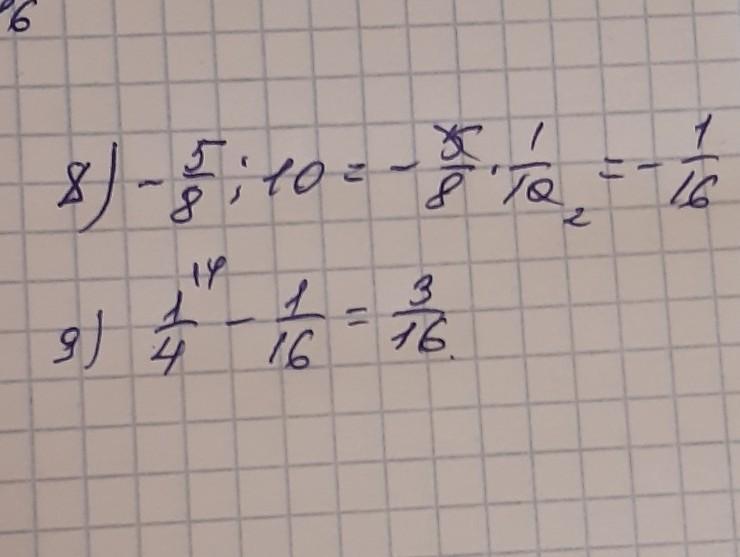 6
8) - 5/8 : 10 = - 5/8 · 1/10 2 = - 1/16
9) 1/4 \4 - 1/16 = 3/16.